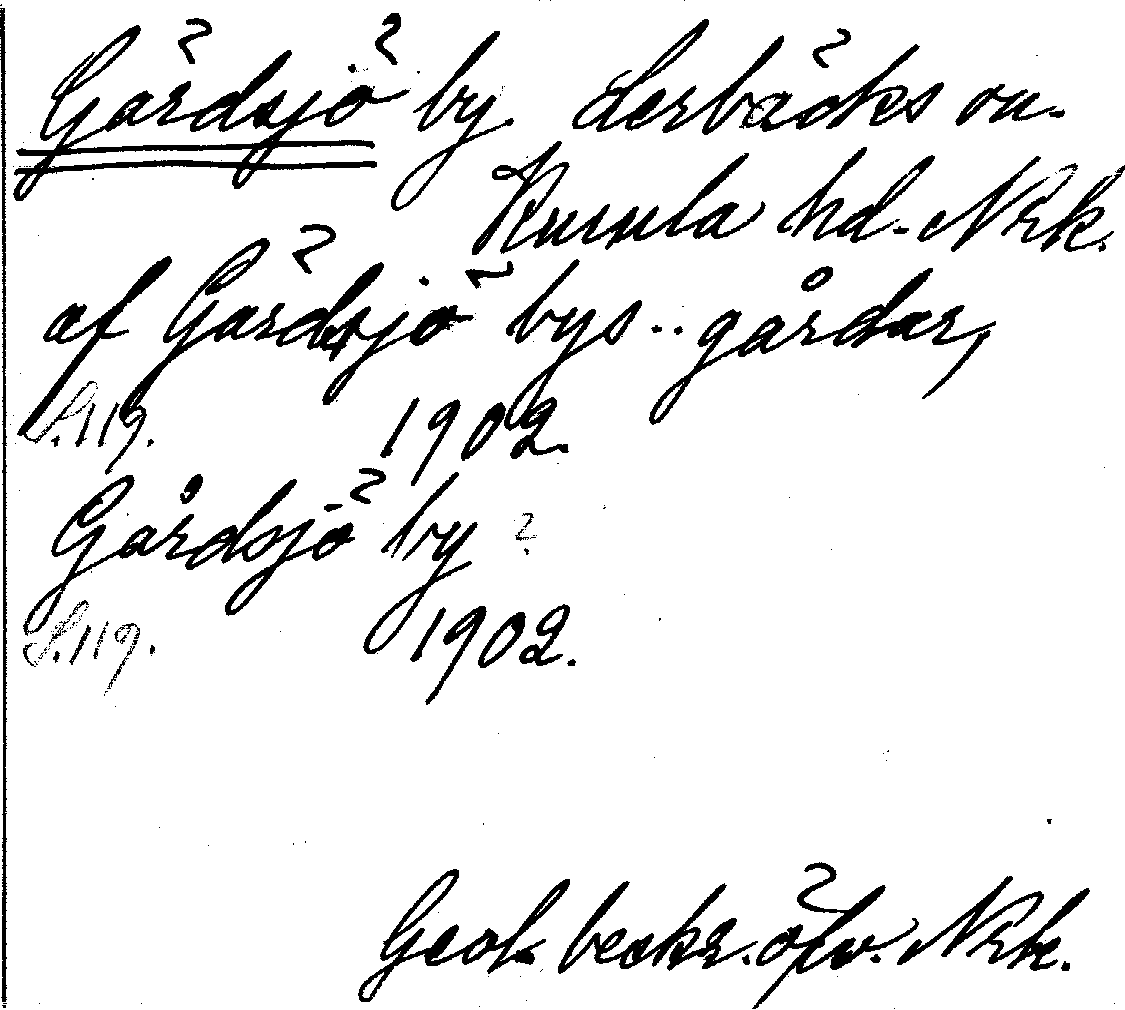 Gärdsjö by. Lerbäcks sn.
Kumla hd. Nrk.
af Gärdsjö bys.. gårdar,
S.119. 1902.
Gårdsjö by ?
S.119. 1902.
Geol. beskr. öfv. Nrk.